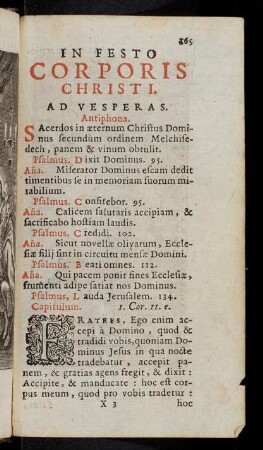 565
IN FESTO
CORPORIS
CHRISTI.
AD VESPERAS.
Antiphona.
SAcerdos in æternum Christus Domi-
nus secundùm ordinem Melchise-
dech, panem & vinum obtulit.
Psalmus. Dixit Dominus. 95.
Aña. Miserator Dominus escam dedit
timentibus se in memoriam suorum mi-
rabilium.
Psalmus. Confitebor. 95.
Aña. Calicem salutaris accipiam, &
sacrificabo hostiam laudis.
Psalmus. Credidi. 102.
Aña. Sicut novellæ olivarum, Eccle-
siæ filij sint in circuitu mensæ Domini.
Psalmus. Beati omnes. 112.
Aña. Qui pacem ponit fines Ecclesiæ,
frumenti adipe satiat nos Dominus.
Psalmus, Lauda Jerusalem. 134.
Capitulum. 1. Cor. 11. e.
FRATRES, Ego enim ac-
cepi à Domino, quod &
tradidi vobis, quoniam Do-
minus Jesus in qua nocte
tradebatur, accepit pa-
nem, & gratias agens fregit, & dixit:
Accipite, & manducate: hoc est cor-
pus meum, quod pro vobis tradetur:
X 3 hoc